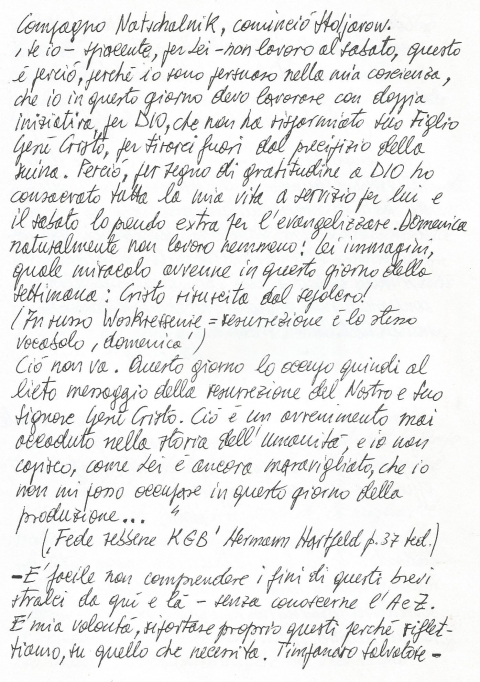 Compagno Natschalnik, cominciò Stoljarow.
, se io - spiacente, per Lei - non lavoro al sabato, questo
é perció, perché io sono persuaso nella mia coscienza,
che io in questo giorno devo lavorare con doppia
iniziativa, per DIO, che non ha risparmiato suo Figlio
Gesú Cristo, per tirarci fuori dal precipizio della
ruina. Perció, per segno di gratitudine a DIO ho
consacrato tutta la mia vita a servizio per lui e
il sabato lo prendo extra per l'evangelizzare. Domenica
naturalmente non lavoro nemmeno! Lei immagini,
quale miracolo avvenne in questo giorno della
settimana: Cristo risuscita dal sepolcro!
(In russo Woskressenie = resurrezione é lo stesso
vocabolo, 'domenica')
Ció non va. Questo giorno lo occupo quindi al
lieto messaggio della resurrezione del Nostro e Suo
Signore Gesú Cristo. Ció é un avvenimento mai
accaduto nella storia dell'umanitá, e io non
capisco, come Lei é ancora maravigliato, che io
non mi posso occupare in questo giorno della
produzione... "
(, Fede sebbene KGB' Hermann Hartfeld p. 37 ted.)
- E' facile non comprendere i fini di questi brevi
stralci da quí e lá - senza conoscerne l'A e Z.
E' mia volontá, riportare proprio questi perché riflet-
tiamo, su quello che necessita. Timpanaro Salvatore -